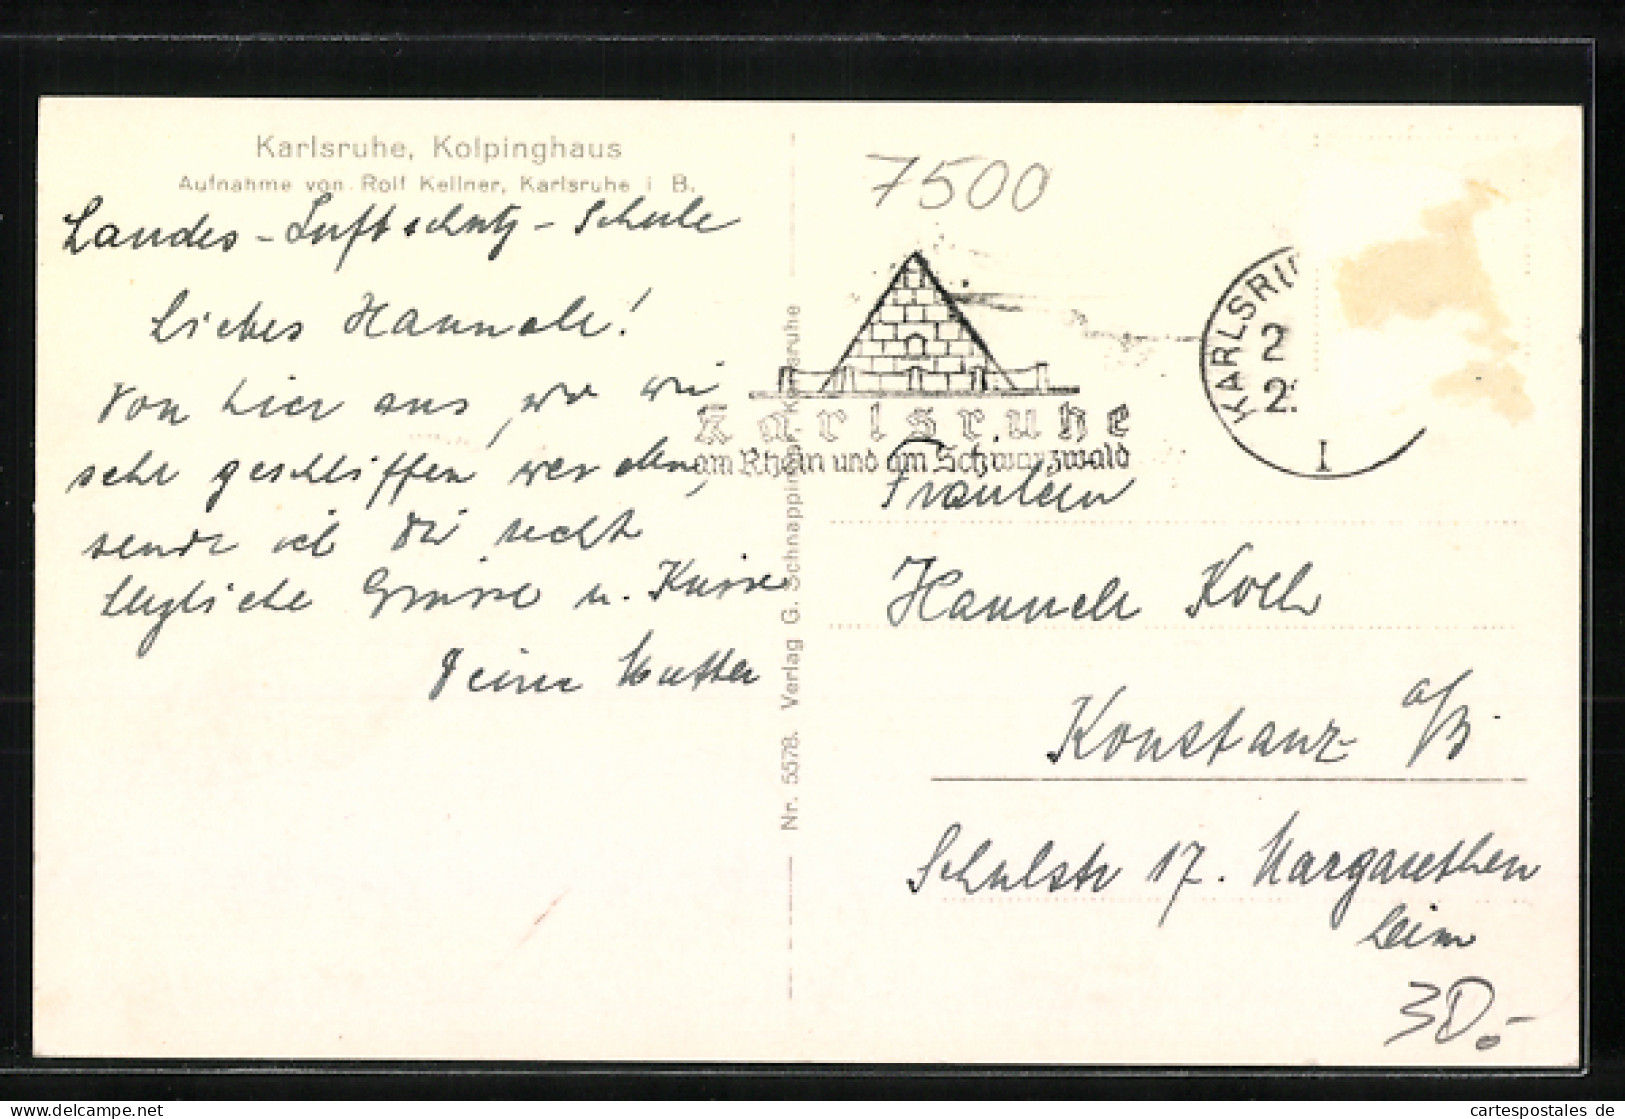 Karlsruhe, Kolpinghaus
Aufnahme von Rolf Kellner, Karlsruhe i. B.
Landes-Luftschutz-Schule
Liebes Hannele!
Von hier aus, wo wir
sehr geschliffen werden,
sende ich Dir recht
herzliche Grüsse u. Küsse
Deine Mutter
Nr. 5578. Verlag G. Schnappinger, Karlsruhe
7500
Karlsruhe
am Rhein und am Schwarzwald
KARLSRU
2
2
1
Fräulein
Hannele
Konstanz a/B
Schulstr 17. Margarethen
30.-
cartespostales de